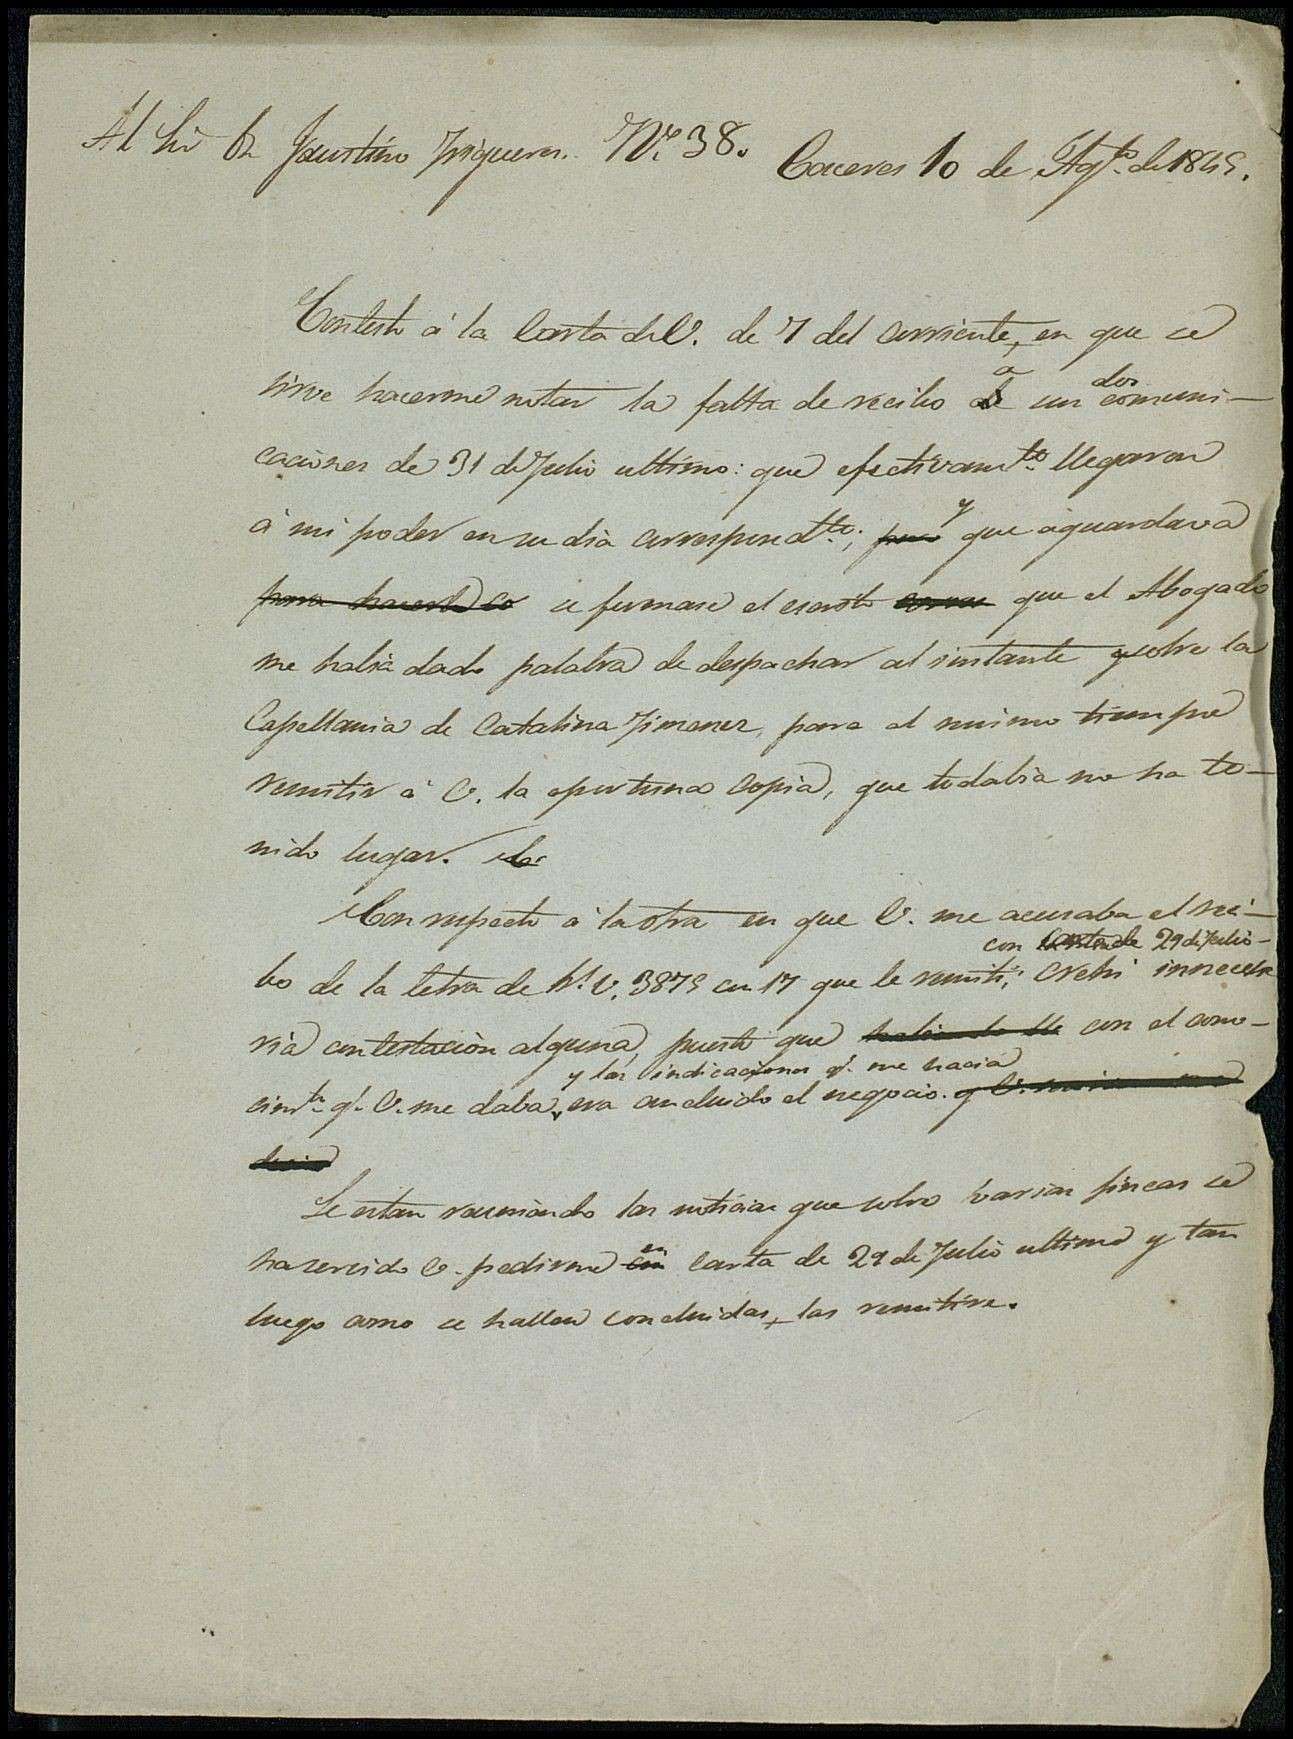 Al Sr. Dn. Faustino Trigueros. N.º 38. Caceres 10 de Agto. de 1845.
Contesto á la Carta de V. de 7 del corriente, en que se
sirve hacerme notar la falta de recibo a sus dos comuni-
caciones de 31 de Julio ultimo: que efectivamte. llegaron
á mi poder en su dia correspondte.; pero y que aguardava
para hacerlo se firmase el escrito que el Abogado
me habia dado palabra de despachar al instante sobre la
Capellania de Catalina Jimenez, para al mismo tiempo
remitir á V. la oportuna Copia, que todabia no ha te-
nido lugar.
Con respecto á la otra en que V. me acusaba el reci-
con Carta de 29 de Julio
bo de la letra de Rs. V. 3875 con 17 que le remití, crehi innecesa
ria contestación alguna, puesto que con el cono-
y las indicaciones q. me hacia
cimto. q. V. me daba, era concluido el negocio.
decia
Se estan reuniendo las noticias que sobre barias fincas se
ha servido V. pedirme en carta de 29 de Julio ultimo y tan
luego como se hallen concluidas, las remitire.